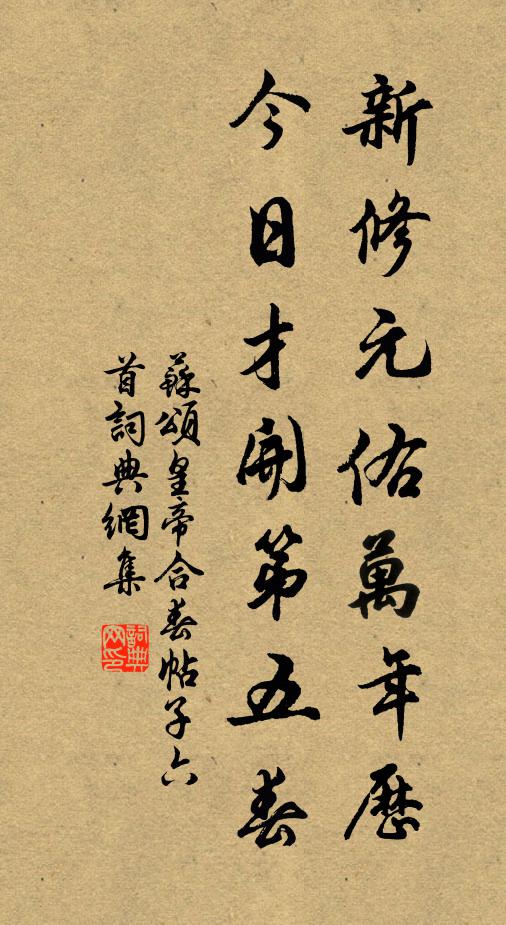 新修元佑萬年歷
今日才開第五春
蘇頌皇帝合春帖子六
首詞典網集
詞典
网印